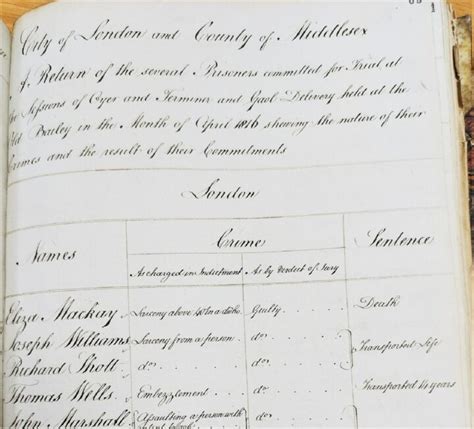 1
City of London and County of Middlesex
A Return of the several Prisoners committed for Trial at
the Sessions of Oyer and Terminer and Gaol Delivery held at the
Old Bailey in the Month of April 1816 showing the nature of their
Crimes and the result of their Commitments
London
Names Crime Sentence
As charged in Indictment As by Verdict of Jury
Eliza Mackay Larceny above 40/ in a dwho. Guilty Death
Joseph Williams Larceny from a person do. Transported Life
Richard Shott do. do.
Thomas Wells Embezzlement do. Transported 14 years
John Marshall Assaulting a person with